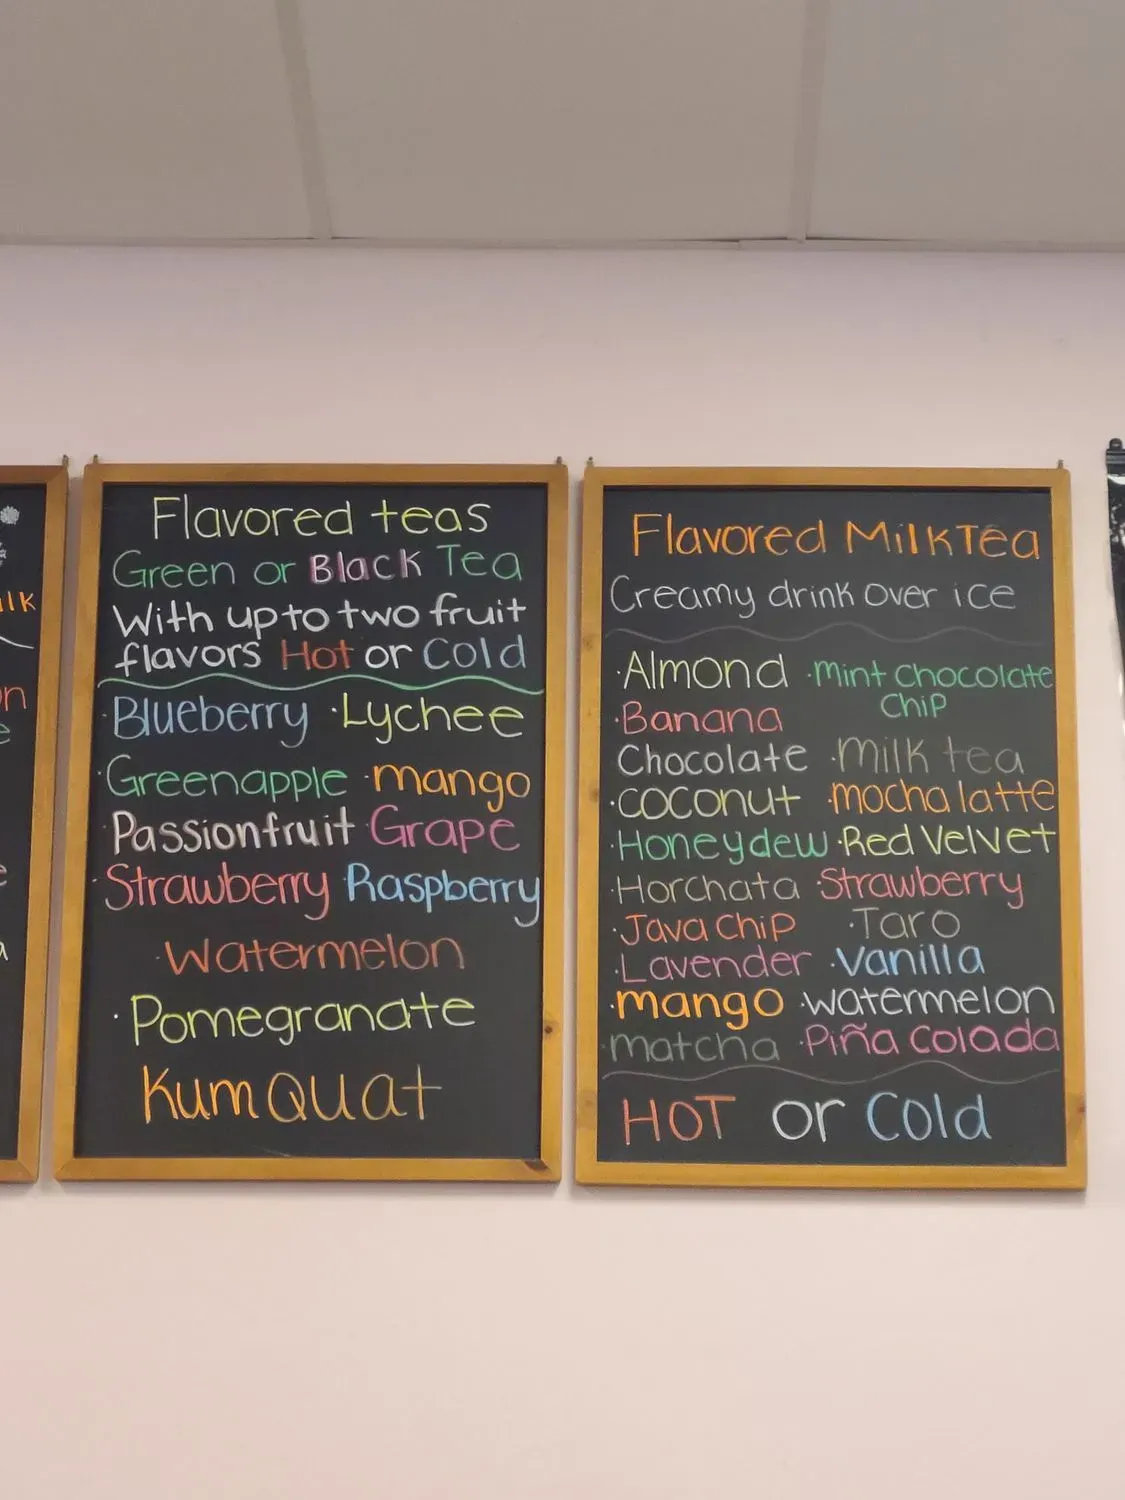 ilk
on
Flavored teas
Green or Black Tea
With up to two fruit
flavors Hot or Cold
·Blueberry ·Lychee
·Greenapple ·mango
·Passionfruit Grape
·Strawberry Raspberry
·Watermelon
·Pomegranate
KumQuat
Flavored Milk Tea
Creamy drink over ice
·Almond ·Mint Chocolate
Chip
·Banana
Chocolate ·Milk tea
·coconut ·mocha latte
·Honeydew ·Red Velvet
·Horchata ·Strawberry
·Java Chip ·Taro
·Lavender ·Vanilla
·mango ·watermelon
·matcha ·Piña Colada
HOT or Cold